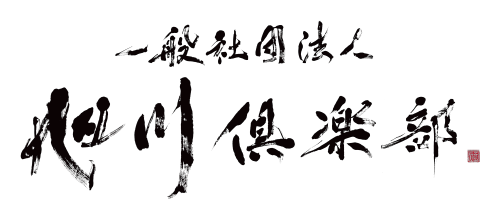 一般社団法人
旭川倶楽部